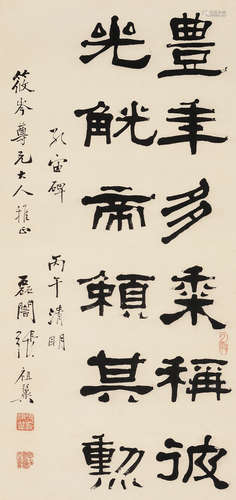 豊年多黍稱彼
光觥帝賴其勲
孔宙碑
丙午清明
筱岑尊兄大人雅正
磊闇張祖翼